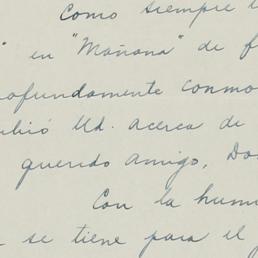 Como siempre l
" en "Mañana" de f
rofundamente conmo
ribió Ud. acerca de
querido amigo, Do
Con la humi
se tiene para el